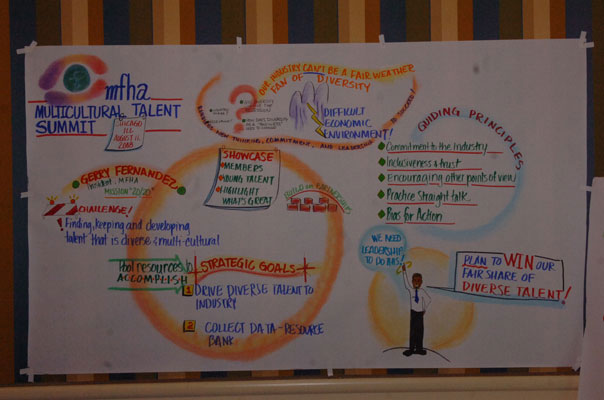 mfha
MULTICULTURAL TALENT
SUMMIT
CHICAGO
ILL
AUGUST 11,
2008
OUR INDUSTRY CAN'T BE A FAIR WEATHER
FAN OF DIVERSITY
DIFFICULT
ECONOMIC
ENVIRONMENT!
THINKING, COMMITMENT, AND LEADERSHIP TO SUCCESS!
GUIDING PRINCIPLES
Commitment to the Industry
Inclusiveness & trust
Encouraging other points of view
Practice Straight talk
Bias for Action
GERRY FERNANDEZ
President, MFHA
MISSION "2020"
CHALLENGE!
! Finding, keeping and developing
talent that is diverse & multi-cultural
SHOWCASE
MEMBERS
YOUNG TALENT
HIGHLIGHT
WHAT'S GREAT
BUILD ON PARTNERSHIPS
Pool resources to
ACCOMPLISH
STRATEGIC GOALS
1 DRIVE DIVERSE TALENT TO
INDUSTRY
2 COLLECT DATA - RESOURCE
BANK
WE NEED
LEADERSHIP
TO DO THIS
PLAN TO WIN OUR
FAIR SHARE OF
DIVERSE TALENT!